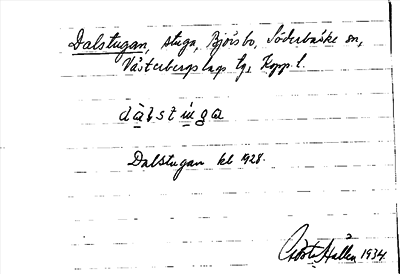 Dalstugan, stuga, Bjôrsbo, Söderbärke sn,
Västerbergslags tg, Kopp. l.
dàlstúga
Dalstugan kl 1928.
Gösta Hallén 1934.